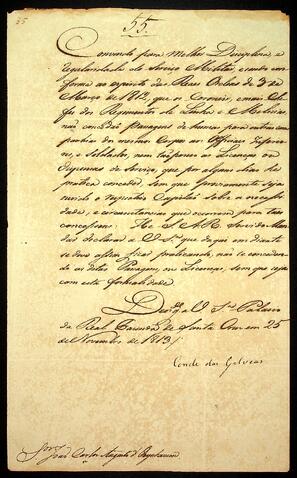 55.
Convindo para melhor Disciplina, e
regularidade do Serviço Militar, e sendo con-
forme ao espirito das Reaes Ordens de 3 de
Março de 1812, que os Coroneis, e mais Che-
fes dos Regimentos de Linha e Milicias,
não concedão Passagens de humas para outras com-
panhias dos mesmos Corpos aos Officiaes Inferio-
res, e Soldados, nem tão pouco as Licenças ou
Dispensas de Serviço, que por alguns dias he
pratica conceder, sem que previamente seja
ouvido o respectivo Capitão sobre a necessi-
dade, e circunstancias que occorrem para taes
concessoens: He S. A. R. Servido Man-
dar declarar a V. S.ª que daqui em diante
se deve assim ficar praticando, não se conceden-
do as ditas Passagens, ou Licenças, sem que seja
com esta formalidade.
Deos g.de a V. S.ª Palacio
da Real Fazenda de Santa Cruz em 25
de Novembro de 1813
Conde das Galveas
Snr. João Carlos Augusto d'Oyenhausen